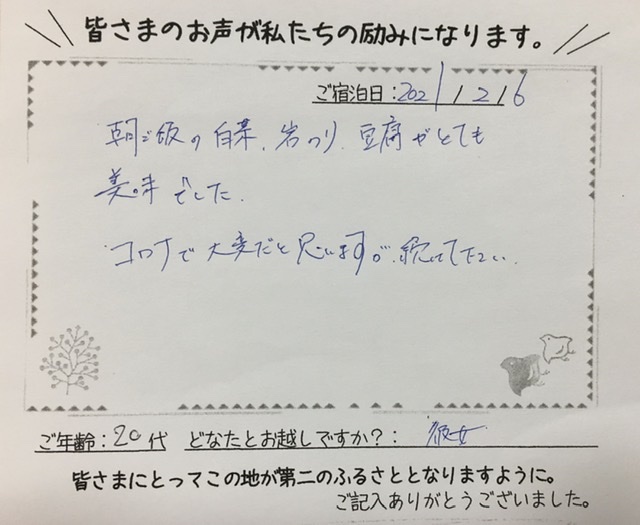 皆さまのお声が私たちの励みになります。
ご宿泊日:2021/12/6
朝ご飯の白菜、岩のり、豆腐がとても
美味でした。
コロナで大変だと思いますが、続けて下さい。
ご年齢:20代 どなたとお越しですか?: 彼女
皆さまにとってこの地が第二のふるさととなりますように。
ご記入ありがとうございました。